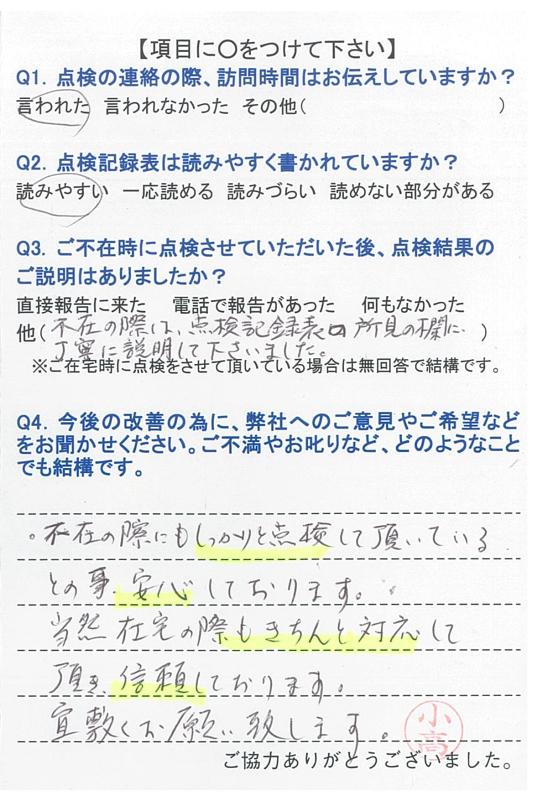 【項目に〇をつけて下さい】
Q1. 点検の連絡の際、訪問時間はお伝えしていますか？
言われた 言われなかった その他（ ）
Q2. 点検記録表は読みやすく書かれていますか？
読みやすい 一応読める 読みづらい 読めない部分がある
Q3. ご不在時に点検させていただいた後、点検結果の
ご説明はありましたか？
直接報告に来た 電話で報告があった 何もなかった
他（不在の際は、点検記録表の所見の欄に、）
丁寧に説明して下さいました。
※ご在宅時に点検をさせて頂いている場合は無回答で結構です。
Q4. 今後の改善の為に、弊社へのご意見やご希望など
をお聞かせください。ご不満やお叱りなど、どのようなこと
でも結構です。
。不在の際にもしっかりと点検して頂いている
との事、安心しております。
当然 在宅の際もきちんと対応して
頂き、信頼しております。
宜敷くお願い致します。
小高
ご協力ありがとうございました。